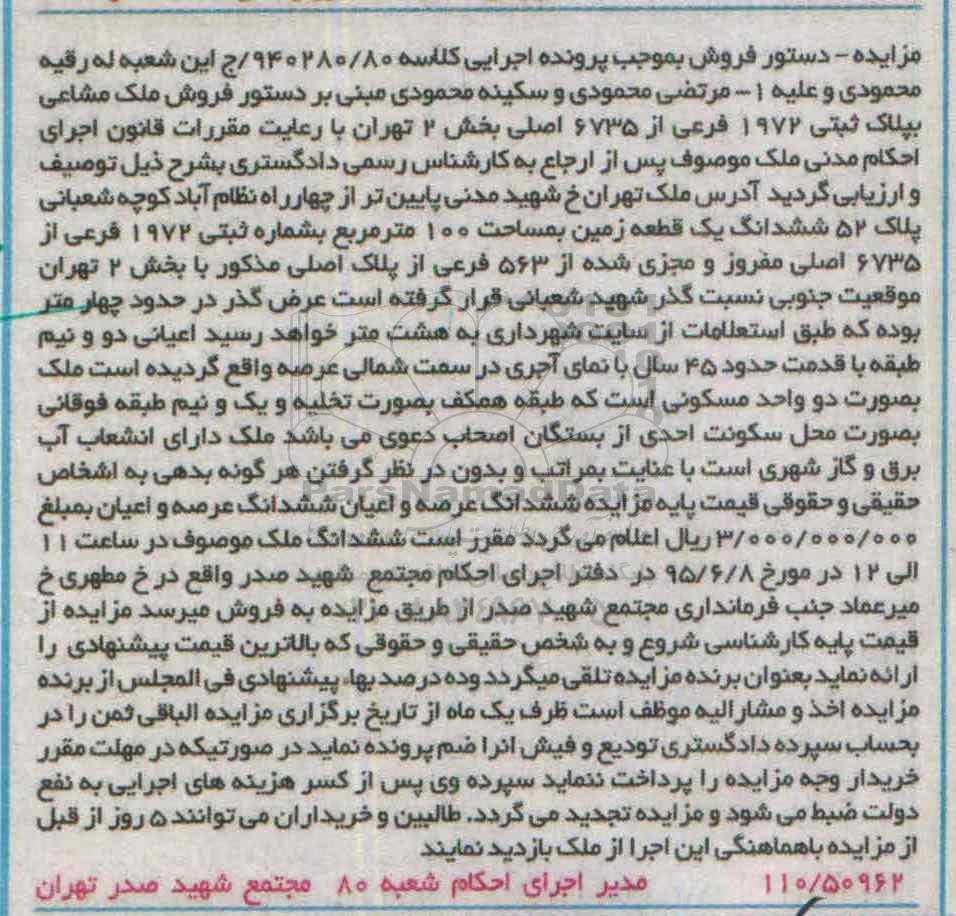 مزایده - دستور فروش بموجب پرونده اجرایی کلاسه ۹۴۰۲۸۰/۸۰/ج این شعبه له رقیه
محمودی و علیه ۱- مرتضی محمودی و سکینه محمودی مبنی بر دستور فروش ملک مشاعی
بپلاک ثبتی ۱۹۷۲ فرعی از ۶۷۳۵ اصلی بخش ۲ تهران با رعایت مقررات قانون اجرای
احکام مدنی ملک موصوف پس از ارجاع به کارشناس رسمی دادگستری بشرح ذیل توصیف
و ارزیابی گردید آدرس ملک تهران خ شهید مدنی پایین تر از چهارراه نظام آباد کوچه شعبانی
پلاک ۵۲ ششدانگ یک قطعه زمین بمساحت ۱۰۰ مترمربع بشماره ثبتی ۱۹۷۲ فرعی از
۶۷۳۵ اصلی مفروز و مجزی شده از ۵۶۳ فرعی از پلاک اصلی مذکور با بخش ۲ تهران
موقعیت جنوبی نسبت گذر شهید شعبانی قرار گرفته است عرض گذر در حدود چهار متر
بوده که طبق استعلامات از سایت شهرداری به هشت متر خواهد رسید اعیانی دو و نیم
طبقه با قدمت حدود ۴۵ سال با نمای آجری در سمت شمالی عرصه واقع گردیده است ملک
بصورت دو واحد مسکونی است که طبقه همکف بصورت تخلیه و یک و نیم طبقه فوقانی
بصورت محل سکونت احدی از بستگان اصحاب دعوی می باشد ملک دارای انشعاب آب
برق و گاز شهری است با عنایت بمراتب و بدون در نظر گرفتن هر گونه بدهی به اشخاص
حقیقی و حقوقی قیمت پایه مزایده ششدانگ عرصه و اعیان ششدانگ عرصه و اعیان بمبلغ
۳/۰۰۰/۰۰۰/۰۰۰ ریال اعلام می گردد مقرر است ششدانگ ملک موصوف در ساعت ۱۱
الی ۱۲ در مورخ ۹۵/۶/۸ در دفتر اجرای احکام مجتمع شهید صدر واقع در خ مطهری خ
میرعماد جنب فرمانداری مجتمع شهید صدر از طریق مزایده به فروش میرسد مزایده از
قیمت پایه کارشناسی شروع و به شخص حقیقی و حقوقی که بالاترین قیمت پیشنهادی را
ارائه نماید بعنوان برنده مزایده تلقی میگردد وده درصد بهاء پیشنهادی فی المجلس از برنده
مزایده اخذ و مشارالیه موظف است ظرف یک ماه از تاریخ برگزاری مزایده الباقی ثمن را در
بحساب سپرده دادگستری تودیع و فیش انرا ضم پرونده نماید در صورتیکه در مهلت مقرر
خریدار وجه مزایده را پرداخت ننماید سپرده وی پس از کسر هزینه های اجرایی به نفع
دولت ضبط می شود و مزایده تجدید می گردد. طالبین و خریداران می توانند ۵ روز از قبل
از مزایده باهماهنگی این اجرا از ملک بازدید نمایند
۱۱۰/۵۰۹۶۲ مدیر اجرای احکام شعبه ۸۰ مجتمع شهید صدر تهران
ParsNamadData